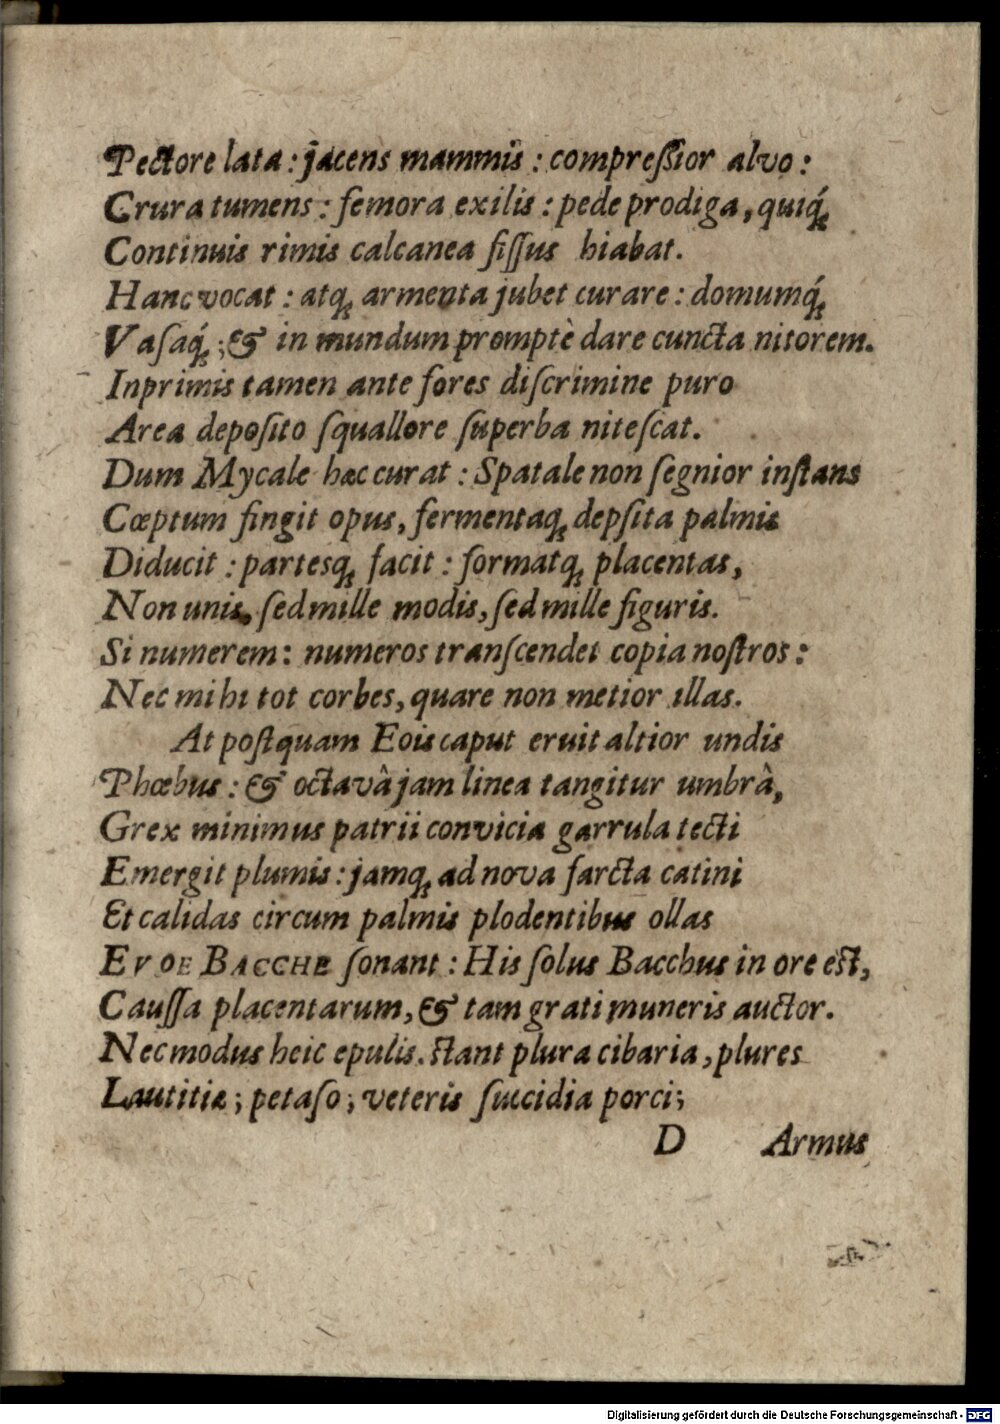 Pectore lata : jacens mammis : compreſſior alvo :
Crura tumens : femora exilis : pede prodiga, quiq́;
Continuis rimis calcanea fiſſus hiabat.
Hanc vocat : atq; armenta jubet curare : domumq́;
Vaſaq́; ; & in mundum promptè dare cuncta nitorem.
Inprimis tamen ante fores diſcrimine puro
Area depoſito ſquallore ſuperba niteſcat.
Dum Mycale hæc curat : Spatale non ſegnior inſtans
Cœptum fingit opus, fermentaq; depſita palmis
Diducit : partesq; facit : formatq; placentas,
Non unis, ſed mille modis, ſed mille figuris.
Si numerem : numeros tranſcendet copia noſtros :
Nec mihi tot corbes, quare non metior illas.
At poſtquam Eois caput eruit altior undis
Phœbus : & octavâ jam linea tangitur umbrâ,
Grex minimus patrii convicia garrula tecti
Emergit plumis : jamq; ad nova farcta catini
Et calidas circum palmis plodentibus ollas
EV OE BACCHE ſonant : His ſolus Bacchus in ore eſt,
Cauſſa placentarum, & tam grati muneris auctor.
Nec modus heic epulis. ſtant plura cibaria, plures
Lautitiæ ; petaſo ; veteris ſuccidia porci ;
D Armus
Digitalisierung gefördert durch die Deutsche Forschungsgemeinschaft - DFG